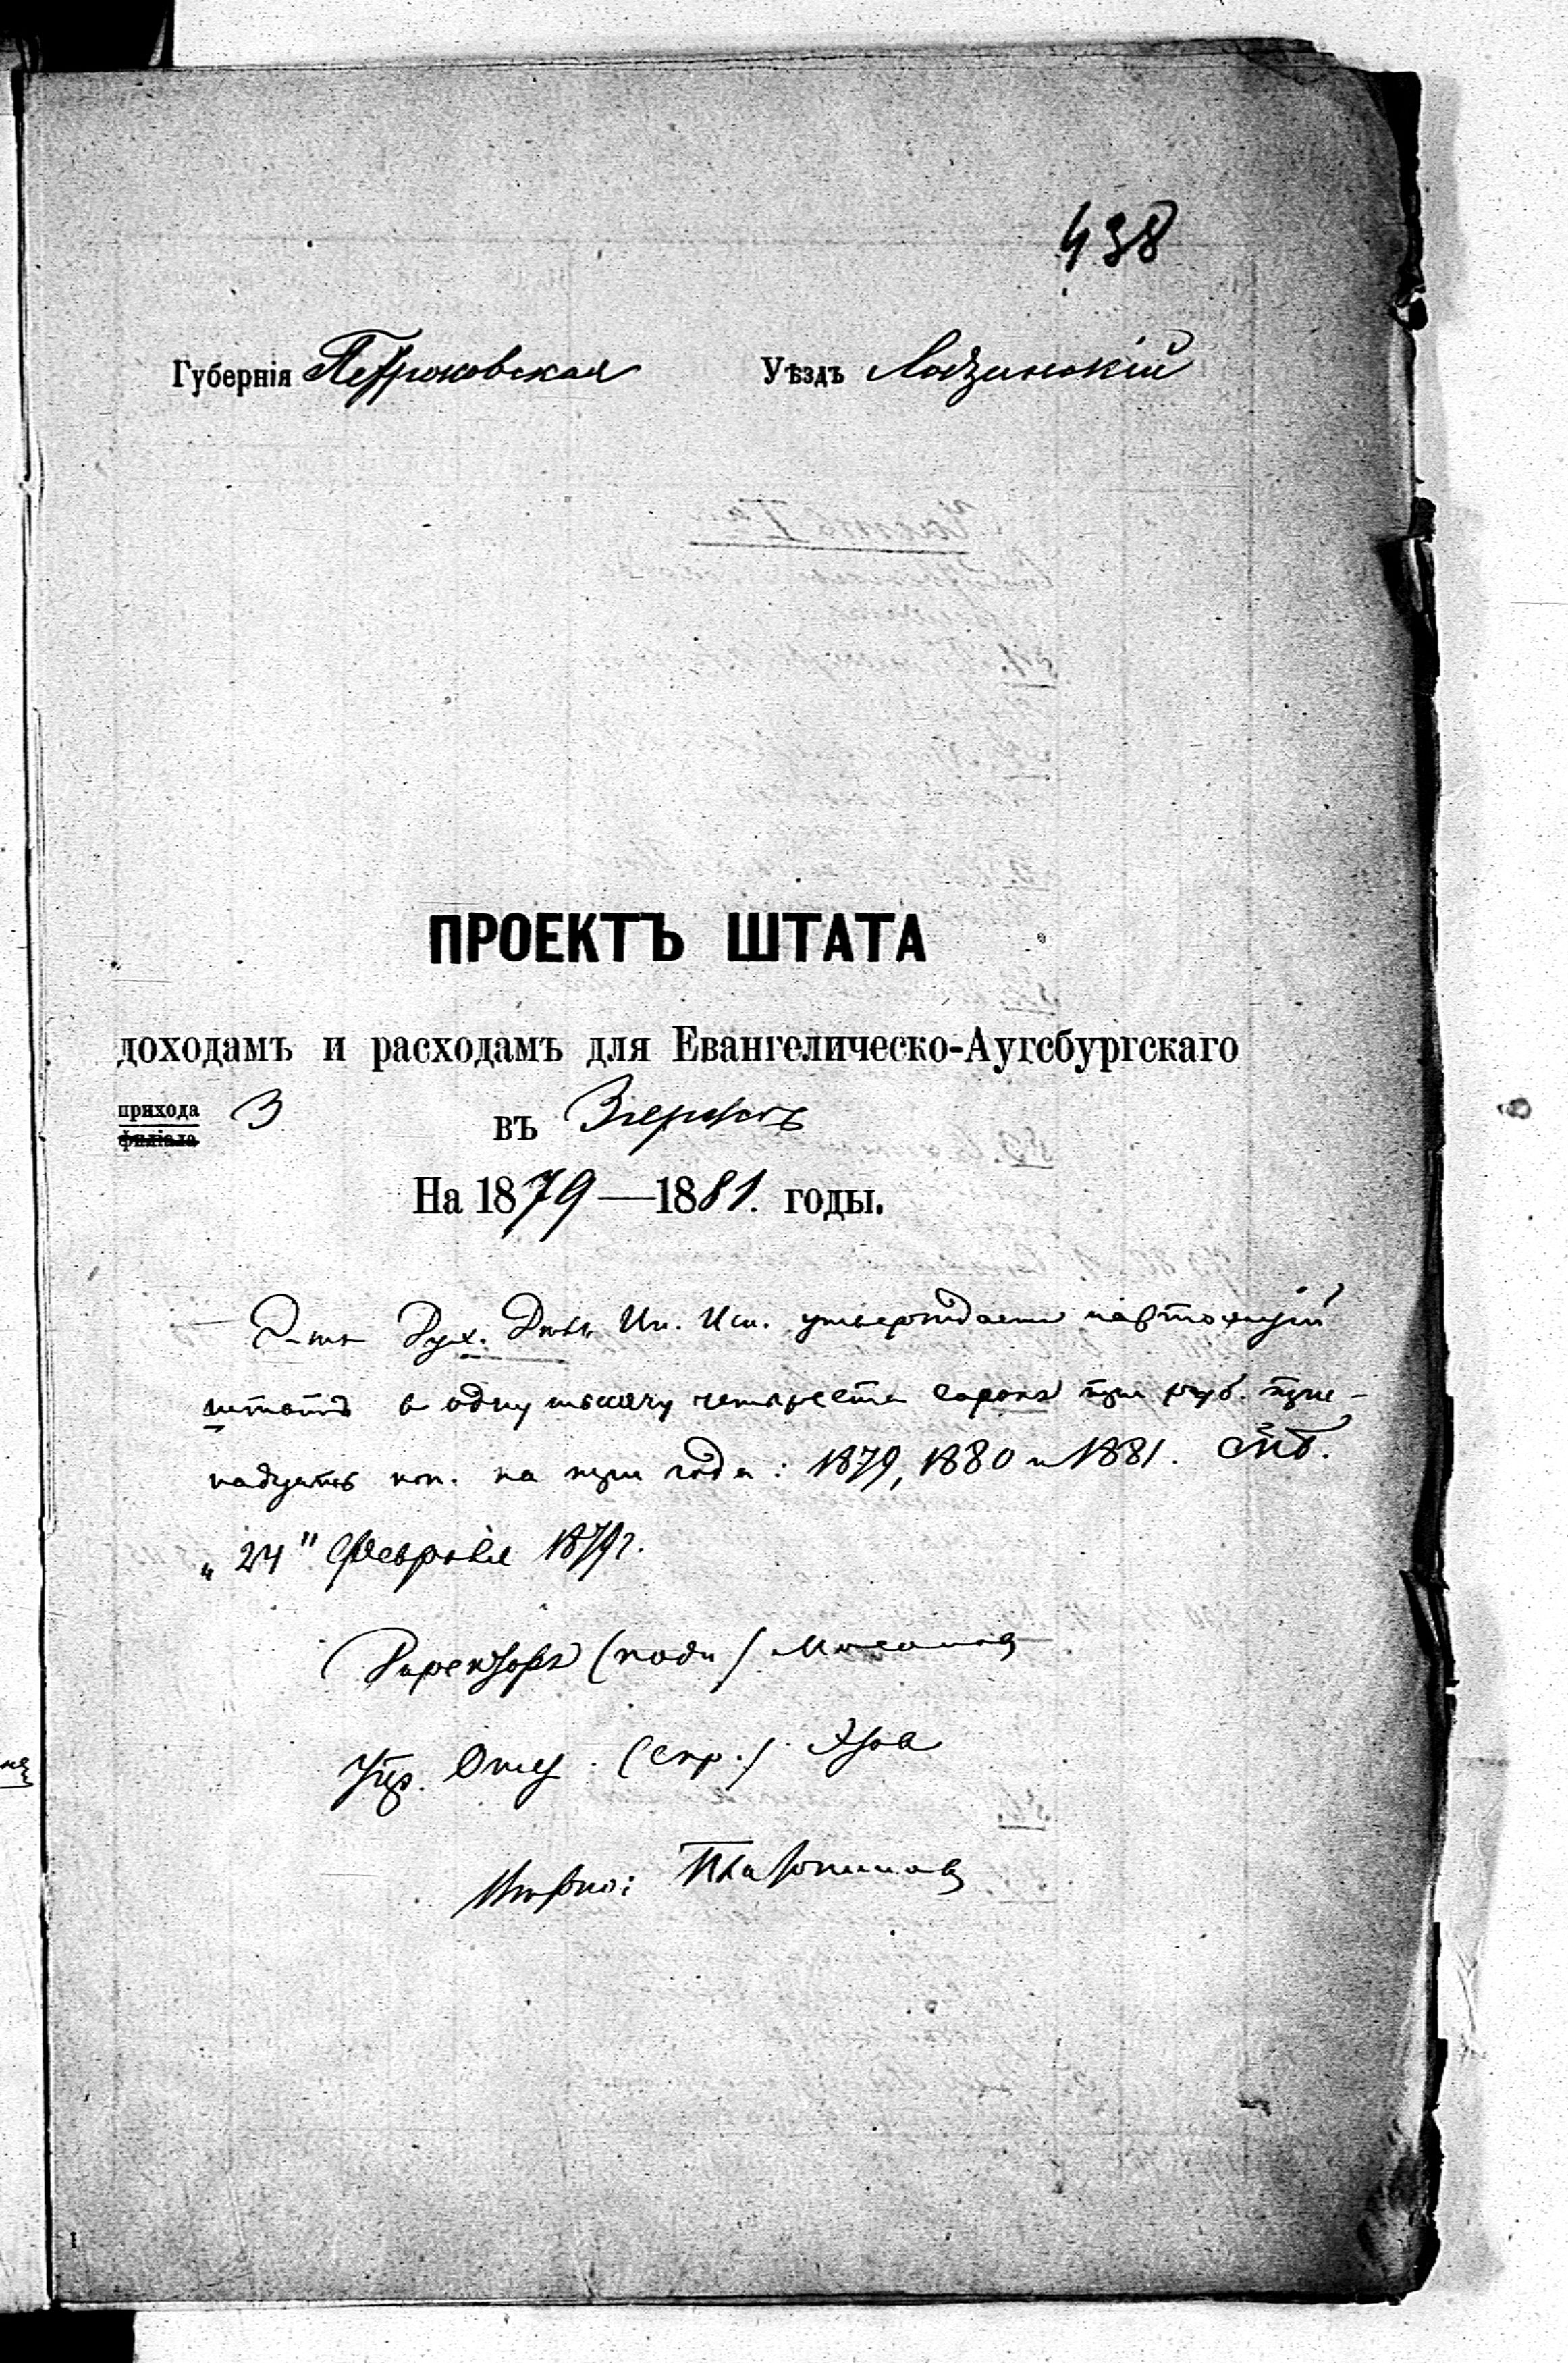 438
Губернія Петроковская Уѣздъ Лодзинскій
ПРОЕКТЪ ШТАТА
доходамъ и расходамъ для Евангелическо-Аугсбургскаго
прихода
филіала
въ Згержѣ
На 1879—1881. годы.
Дух. Дѣлъ Ин. Исп. утверждаетъ настоящій
штатъ въ одну тысячу четыреста сорокъ три руб. три-
надцать коп. на три года: 1879, 1880 и 1881. СПб.
„24" Февраля 1879 г.
Директоръ (подп)
Упр. Отд. (скр.)
Вѣрно: